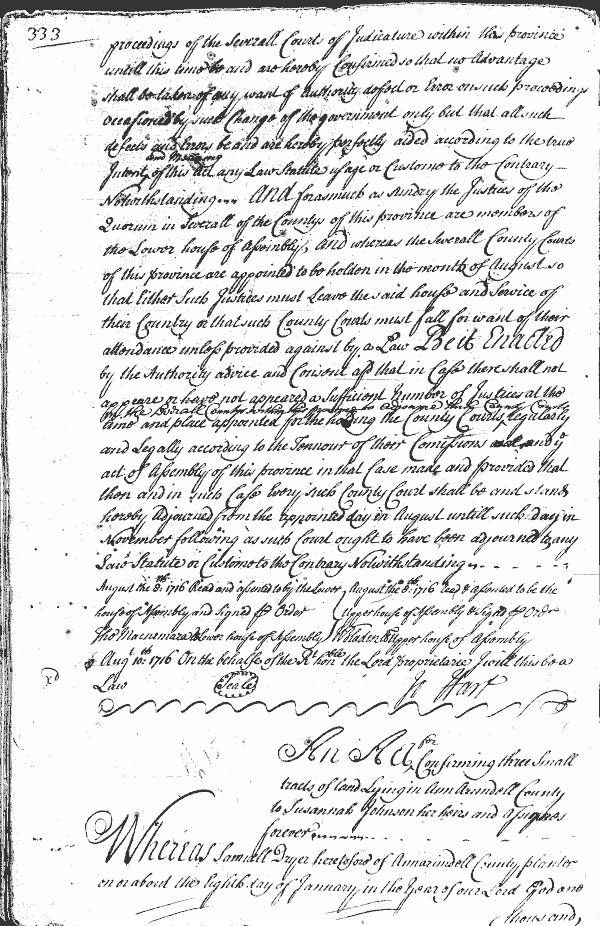 333
proceedings of the Severall Courts of Judicature within this province
untill this time be and are hereby Confirmed so that no Advantage
shall be taken of any want of authority defect or Error on such proceedings
occasioned by such Change of the government only but that all such
defects and Errors be and are hereby perfectly aided according to the true
and meaning
Intent of this Act any Law Statute usage or Custome to the Contrary
Notwithstanding... And forasmuch as Sundry the Justices of the
Quorum in Severall of the Countys of this province are members of
the Lower house of Assembly, And whereas the Severall County Courts
of this province are appointed to be holden in the month of August so
that Either Such Justices must Leave the said house and Service of
their Country or that such County Courts must fall for want of their
attendance unless provided against by a Law Be it Enacted
by the Authority advice and Consent afd that in Case there shall not
appeare or have not appeared a Sufficient number of Justices at the
time and place appointed for the holding the County Courts regularly
and Legally according to the Tennour of their Comissions and ye
act of Assembly of this province in that Case made and provided that
then and in such Case Every such County Court shall be and stand
hereby Adjourned from the appointed day in August untill such day in
November following as such Court ought to have been adjourned to any
Law Statute or Custome to the Contrary Notwithstanding
August the 8th: 1716 Read and assented to by the Lower
house of Assembly and Signed p Order
Tho Macnemara Cl Lower house of Assembly
August the 8th: 1716 read & assented to be the
Upper house of Assembly & Signed p Order
Upper house of Assembly
Augt 10th: 1716 On the behalfe of the Rt honble the Lord proprietarie I will this be a
Law
Sealed
Jo Hart
An Act for Confirming three Small
tracts of land Lying in Ann Arundell County
to Susannah Johnson her heirs and Assignes
forever
Whereas Samuell Dryer heretofore of Annarundell County planter
on or about the Eighth day of January in the Year of our Lord God one
thousand,